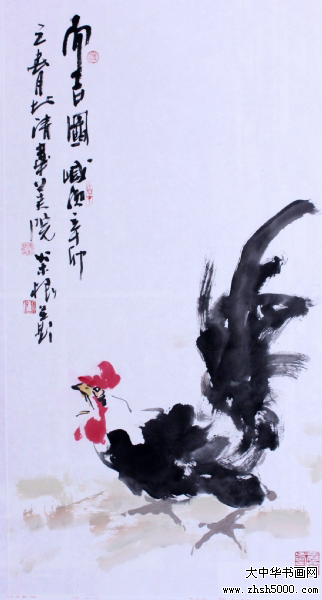 吉圖 歲次辛卯
之春月於清華美院 根
大中华书画网
www.zhsh5000.com